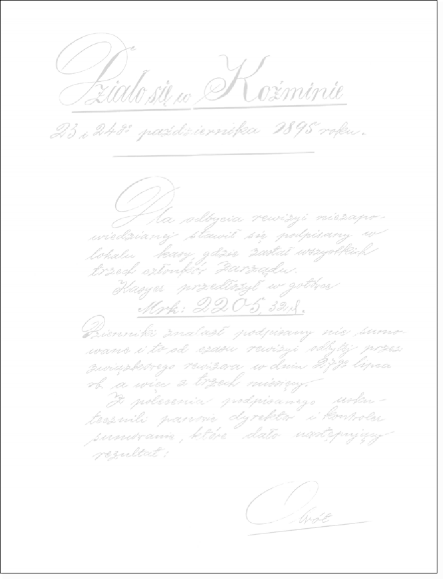 Działo się w Koźminie
23 i 24go października 1895 roku.
Dla odbycia rewizyi niezapo-
wiedzianej stawił się podpisany w
lokalu kasy gdzie zastał wszystkich
trzech członków Zarządu.
Kasyer przedłożył w gotówce
Mrk: 2205,
Dzienniki znalazł podpisany nie sumo-
wane i to od czasu rewizyi odbytej przez
rewizora w dniu lipca
rb. a więc z trzech miesięcy.
Z polecenia podpisanego usku-
tecznili panowie dyrektor i kontroler
sumowanie, które dało następujący
rezultat:
Obrót